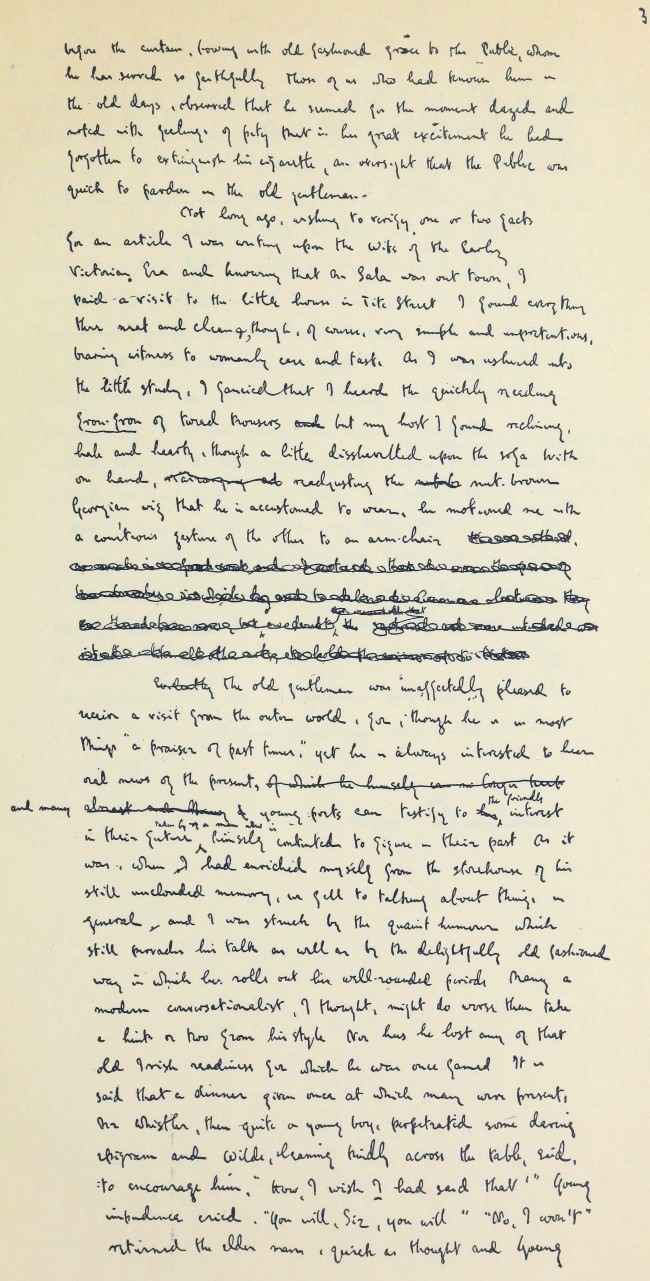 3
before the curtain, bowing with old fashioned grace to the Public, whom
he has served so faithfully Those of us who had known him in
the old days, observed that he seemed for the moment dazed and
noted with feelings of pity that in his great excitement he had
forgotten to extinguish his cigarette, an oversight that the Public was
quick to pardon in the old gentleman.
Not long ago, wishing to verify one or two facts
for an article I was writing upon the Wits of the Early
Victorian Era and knowing that Mr Sala was out town, I
paid a visit to the little house in Tite Street I found everything
there neat and clean, though, of course, very simple and unpretentious,
bearing witness to womanly care and taste. As I was ushered into
the little study, I fancied that I heard the quickly receding
frou-frou of tweed trousers and but my host I found reclining,
hale and hearty, though a little dishevelled upon the sofa With
one hand, readjusting the nut-brown
Georgian wig that he is accustomed to wear, he motioned me with
a courteous gesture of the other to an arm-chair
the
Evidently the old gentleman was unaffectedly pleased to
receive a visit from the outer world, for, though he is in most
things "a praiser of past times," yet he is always interested to hear
oral news of the present, of which he himself can no longer
and many almost and many young poets can testify to his the friendly interest
in their future himself contented to figure in their past As it
was, when I had enriched myself from the storehouse of his
still unclouded memory, we fell to talking about things in
general, and I was struck by the quaint humour which
still pervades his talk as well as by the delightfully old fashioned
way in which he rolls out his well-rounded periods Many a
modern conversationalist, I thought, might do worse than take
a hint or two from his style Nor has he lost any of that
old Irish readiness for which he was once famed It is
said that a dinner given once at which many were present,
Mr Whistler, then quite a young boy, perpetrated some daring
epigram and Wilde, leaning kindly across the table, said,
to encourage him, "How I wish I had said that!" Young
impudence cried, "You will, Sir, you will" "No, I won't"
returned the elder man, quick as thought and Young